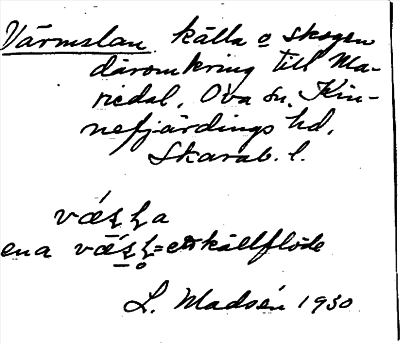 Värmslan källa o skogen
däromkring till Ma-
riedal, Ova sn, Kin-
nefjärdings hd,
Skarab. l.
ena = källflöde
L. Madsén 1930